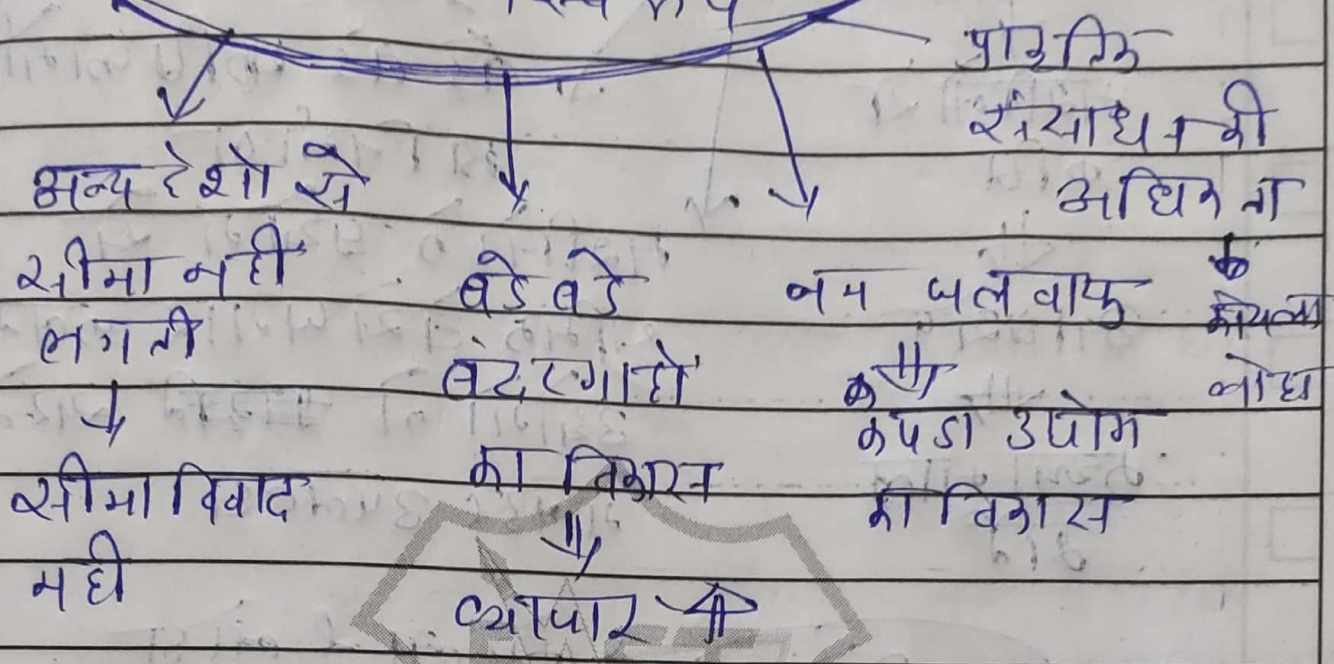 प्राकृतिक
संसाधन की
अधिकता
कोयला
लोहा
अन्य देशो से
सीमा नही
लगती
सीमा विवाद
नही
बडे बडे
बंदरगाहो
का विकास
व्यापार
नम जलवायु
कपडा उद्योग
का विकास